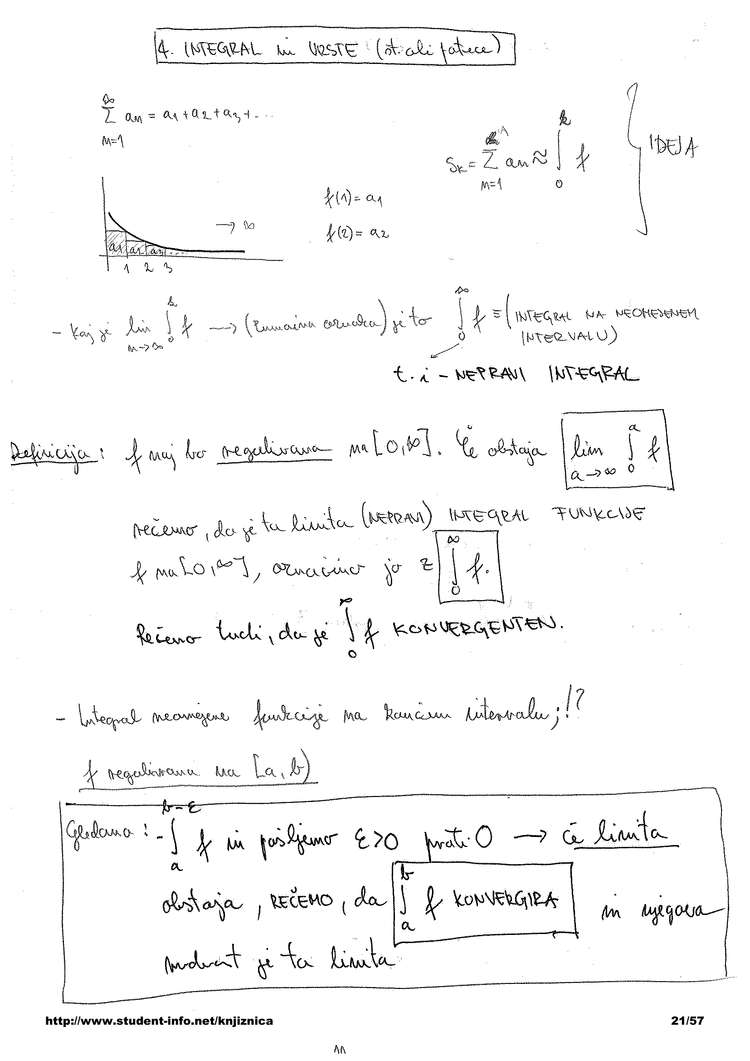 4. INTEGRAL in VRSTE (št. ali potece)
∞
Σ an = a1 + a2 + a3 + ...
n=1
Sk = Σ an ≈ ∫ f
n=1 0 k
IDEJA
f(1) = a1
f(2) = a2
→ ∞
a1 a2 a3 ...
1 2 3
- Kaj je lim ∫ f → ( oznaka) je to ∫ f ≡ (INTEGRAL NA NEOMEJENEM
n→∞ 0 k 0 ∞ INTERVALU)
t.i - NEPRAVI INTEGRAL
Definicija: f naj bo regulirana na [0,∞]. Če obstaja lim ∫ f
a→∞ 0 a
rečemo, da je ta limita (NEPRAVI) INTEGRAL FUNKCIJE
f na [0,∞], označimo jo z ∫ f.
0 ∞
Rečemo tudi, da je ∫ f KONVERGENTEN.
0 ∞
- Integral neomejene funkcije na končnem intervalu; !?
f regulirana na [a, b)
b-ε
Gledamo: - ∫ f in pošljemo ε>0 proti 0 → če limita
a
obstaja, REČEMO, da ∫ f KONVERGIRA in njegova
a b
vrednost je ta limita
http://www.student-info.net/knjiznica 21/57